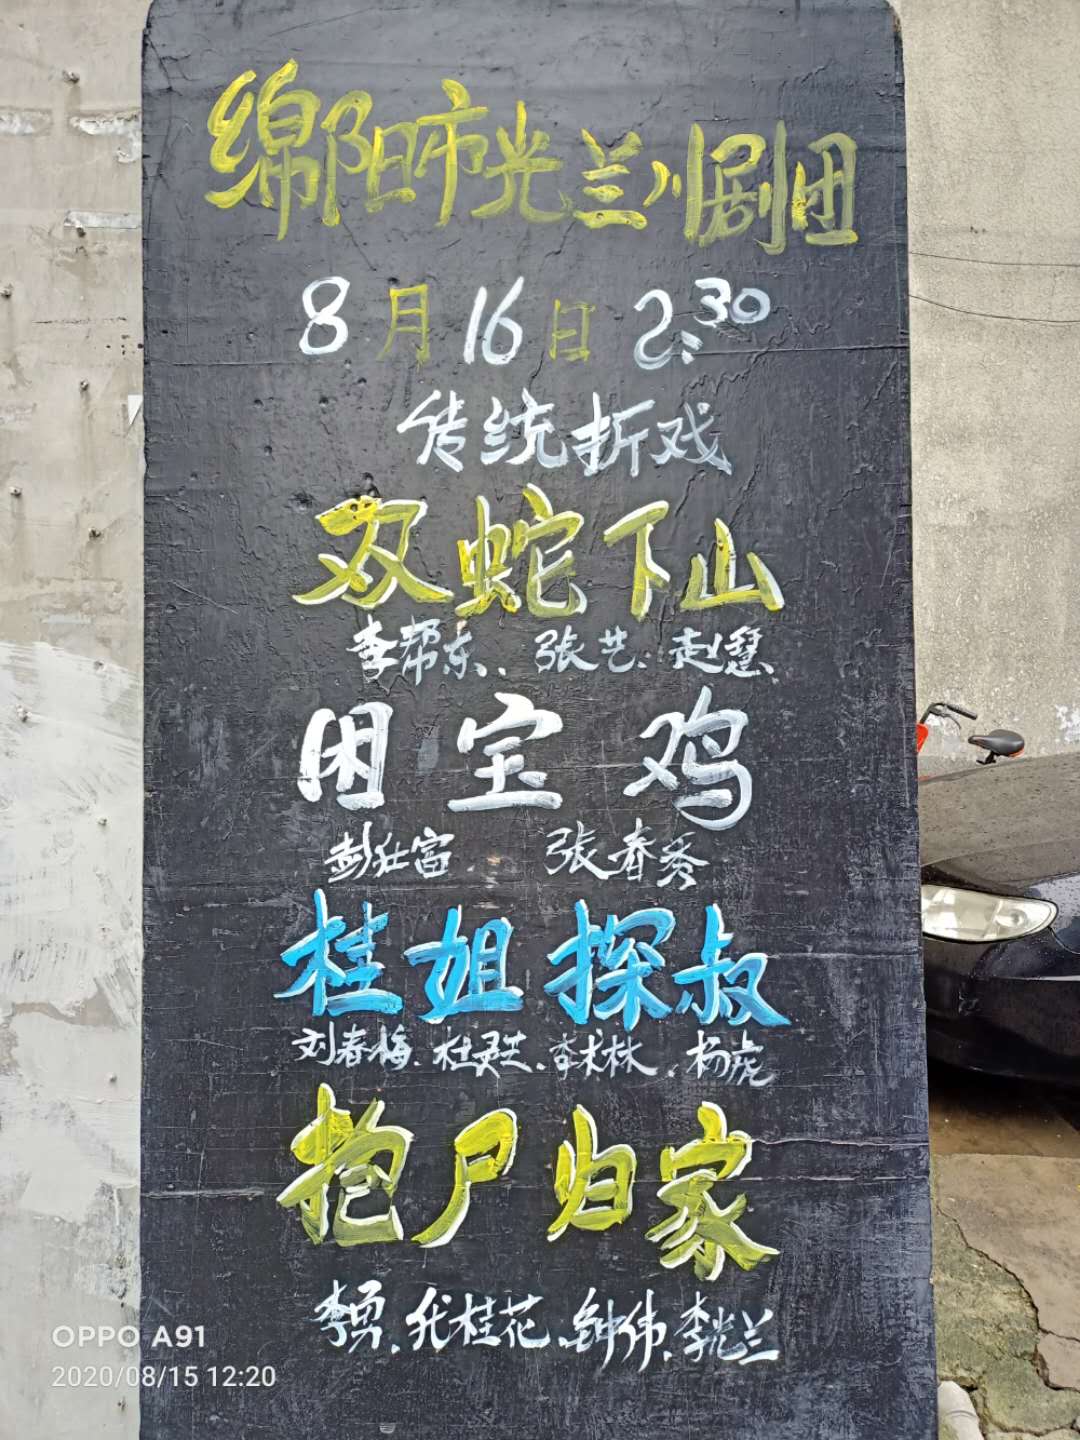 绵阳市光兰川剧团
8月16日 2:30
传统折戏
双蛇下山
李帮东、张艺、赵慧、
困宝鸡
彭壮富、张春秀
桂姐探叔
刘春梅、杜灵芝、李木林、杨虎
抱尸归家
李勇、代桂花、钟伟、李光兰
OPPO A91
2020/08/15 12:20